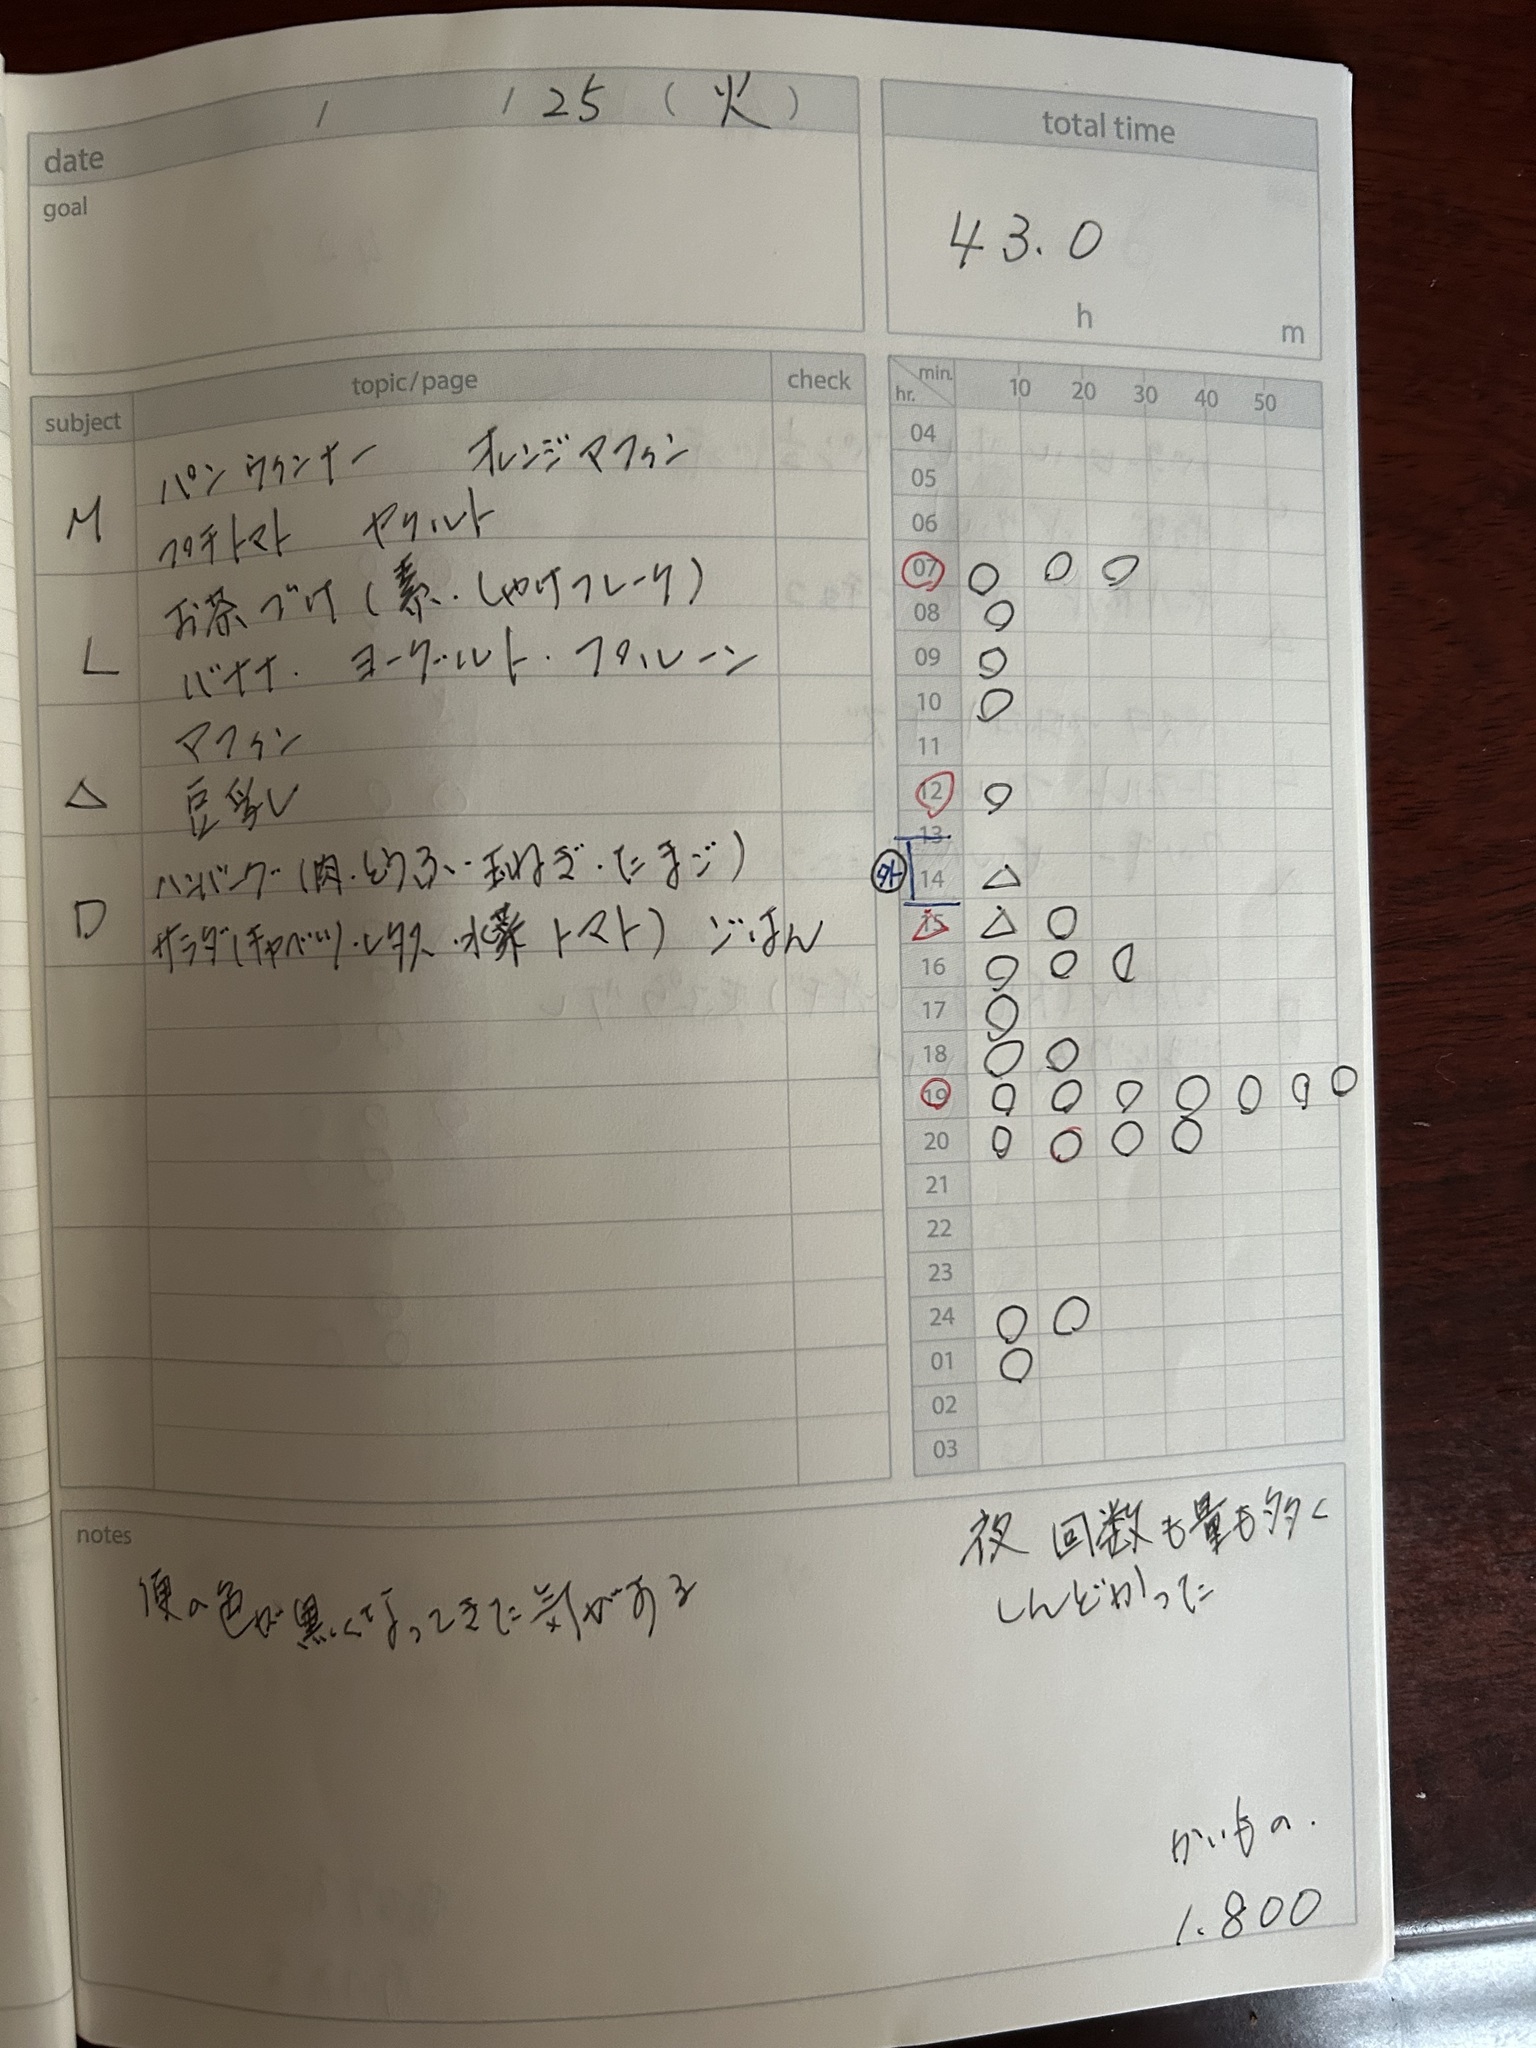 date / / 25 (火)
total time
goal
43.0
h m
subject topic/page check
M パン ウィンナー オレンジマフィン
プチトマト ヤクルト
L お茶づけ (素・しゃけフレーク)
バナナ・ヨーグルト・プルーン
マフィン
△ 豆乳
D ハンバーグ (肉・とうふ・玉ねぎ・たまご)
サラダ (キャベツ・レタス・水菜 トマト) ごはん
hr. min. 10 20 30 40 50
04
05
06
07 ○ ○ ○
08 ○
09 ○
10 ○
11
12 ○
13
外 14 △
15 △ ○
16 ○ ○
17 ○
18 ○ ○
19 ○ ○ ○ ○ ○ ○ ○
20 ○ ○ ○ ○
21
22
23
24 ○ ○
01 ○
02
03
notes
便の色が黒くなってきた気がする
夜 回数も量も多く
しんどかった
かいもの.
1.800